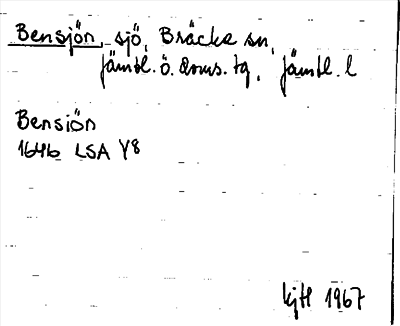 Bensjön, sjö, Bräcke sn,
Jämtl. ö. doms. tg, Jämtl. l
Bensiön
1646 LSA Y8
1967